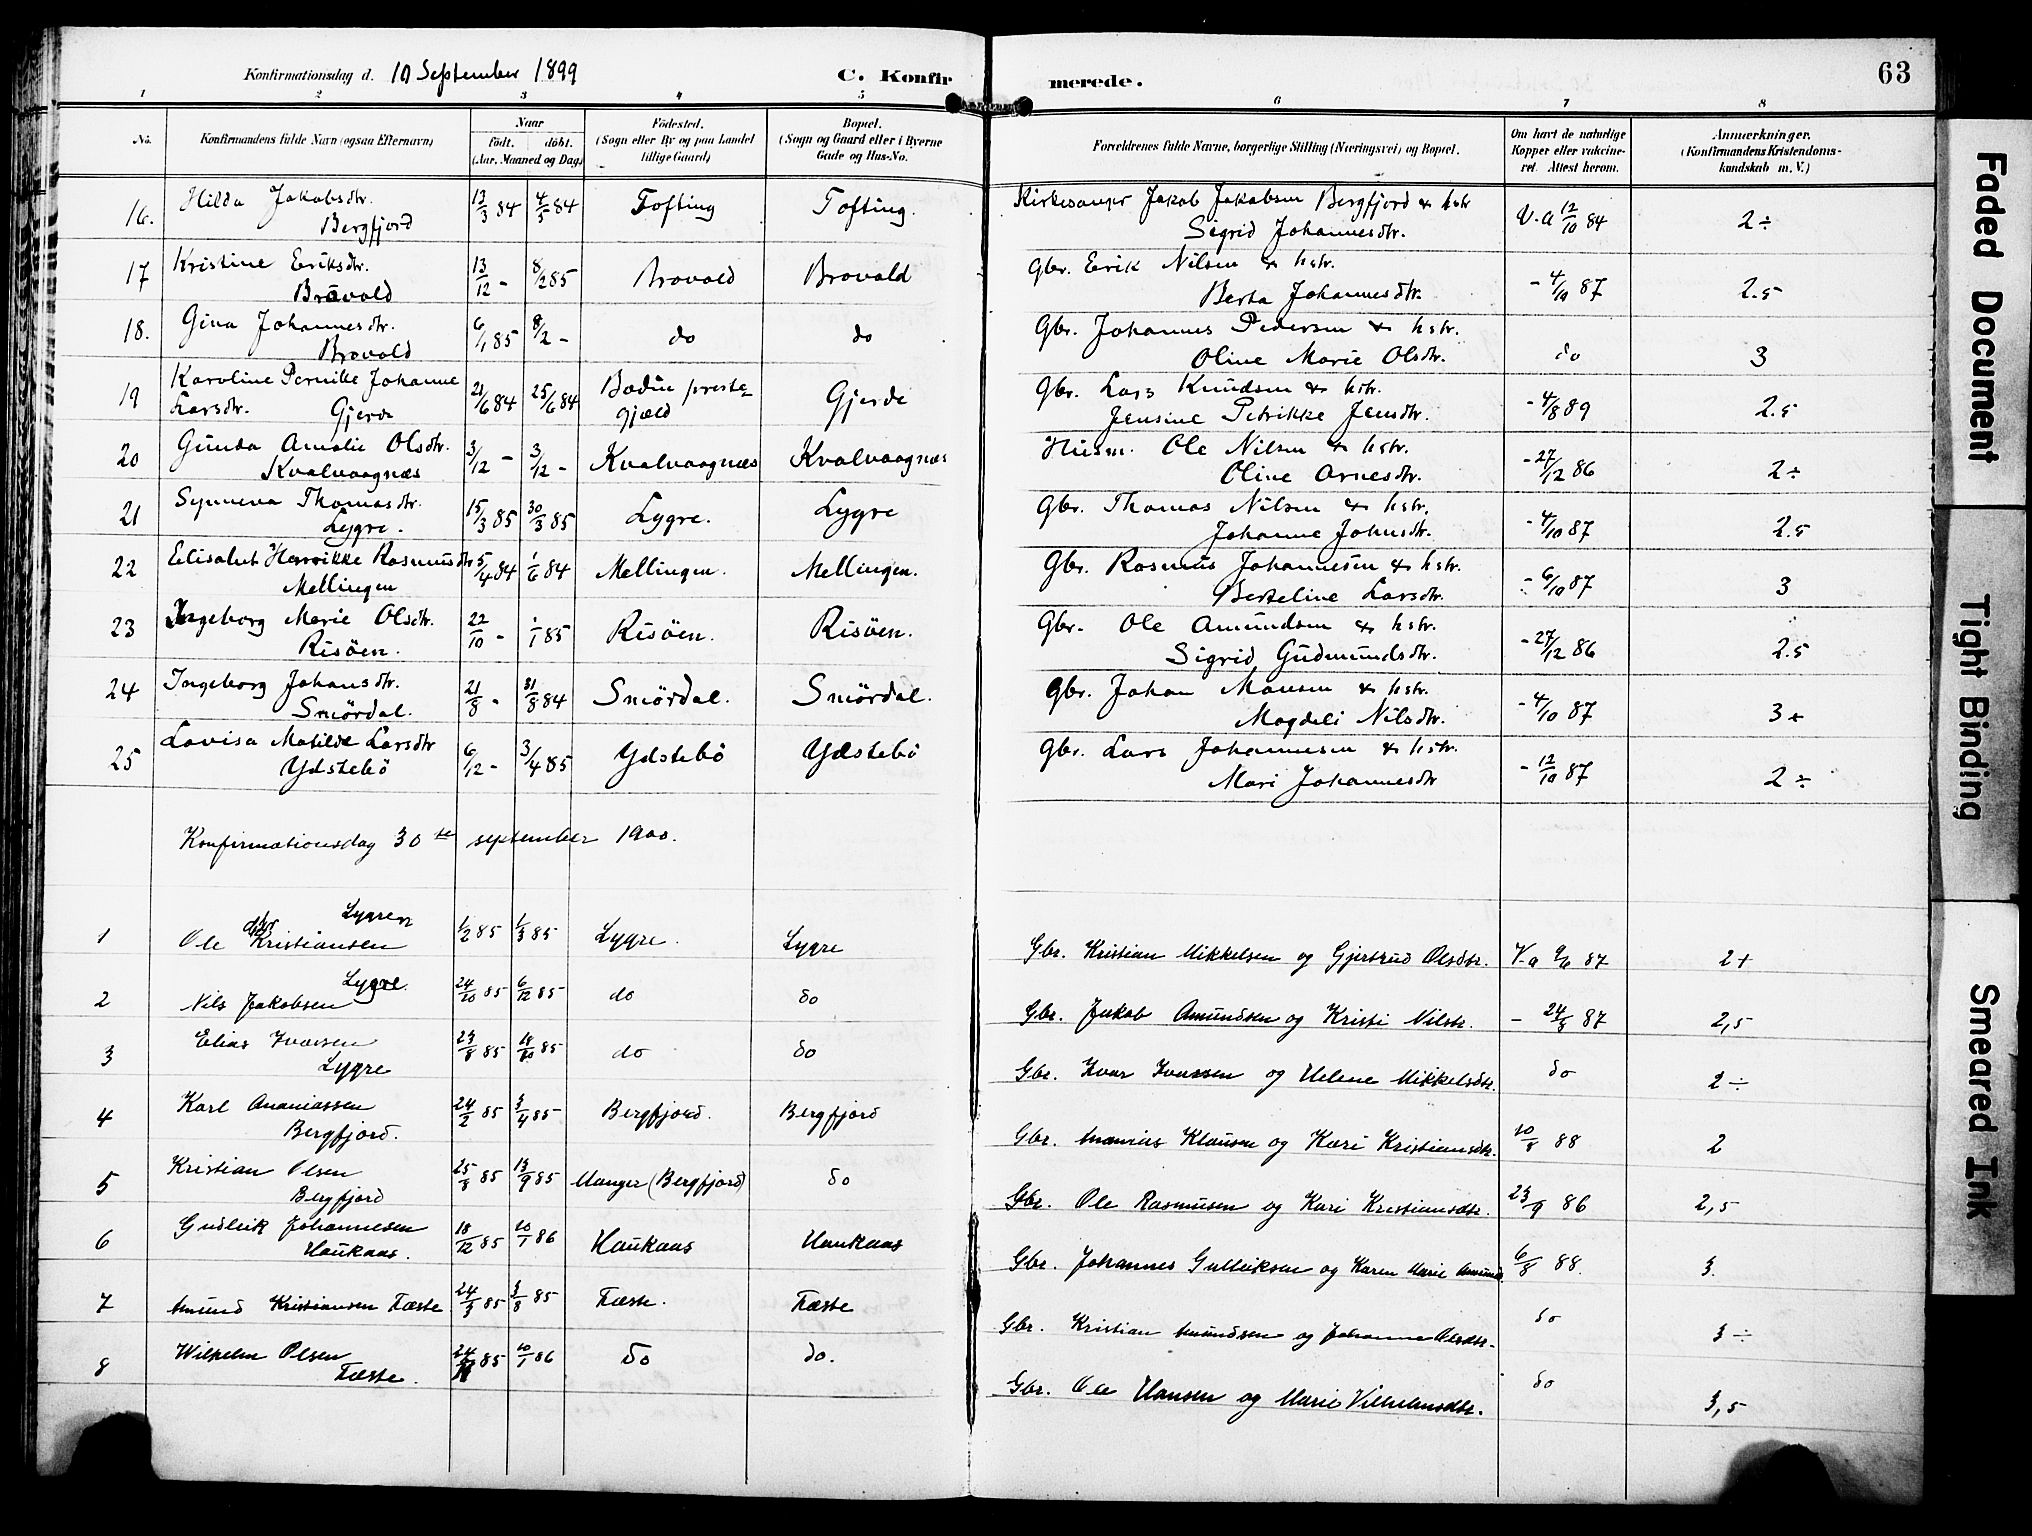 Konfirmationsdag d. 10 September 1899
C. Konfirmerede.
63
1 2 3 4 5 6 7 8
No. Konfirmandens fulde Navn (ogsaa Efternavn) Naar født. døbt. (Aar, Maaned og Dag) Fødested. (Sogn eller By og paa Landet tillige Gaard) Bopæl. (Sogn og Gaard eller i Byerne Gade og Hus-No. Forældrenes fulde Navne, borgerlige Stilling (Næringsvei) og Bopæl. Om havt de naturlige Kopper eller vaccineret. Attest herom. Anmærkninger. (Konfirmandens Kristendomskundskab m. V.)
16. Hilda Jakobsdtr. Bergfjord 13/3 84 4/5 84 Tofting Tofting. Kirkesanger Jakob Jakobsen Bergfjord & hstr Sigrid Johannesdtr. V.a 12/10 84 2÷
17 Kristine Eriksdtr. Bråvold 13/12 - 8/2 85 Brovold Brovold Gbr. Erik Nilsen & hstr. Berta Johannesdtr. - 4/10 87 2.5
18. Gina Johannesdtr. Brovold 6/1 85 8/2 - do do Gbr. Johannes Pedersen & hstr. Oline Marie Olsdtr. do 3
19 Karoline Pernille Johanne Larsdtr. Gjerde 21/6 84 25/6 84 Bodin prestegjæld Gjerde Gbr. Lars Knudsen & hstr. Jensine Petrikke Jensdtr. - 4/8 89 2.5
20 Gunda Amalie Olsdtr. Kvalvaagnæs 3/12 - 3/12 - Kvalvaagnæs Kvalvaagnæs Husm. Ole Nilsen & hstr. Oline Arnesdtr. - 27/12 86 2÷
21 Synneva Thomasdtr. Lygre. 15/3 85 30/3 85 Lygre. Lygre Gbr. Thomas Nilsen & hstr. Johanne Johnsdtr. - 4/10 87 2.5
22 Elisabet Henrikke Rasmusdtr Mellingen 5/4 84 1/6 84 Mellingen. Mellingen. Gbr. Rasmus Johannesen & hstr. Berteline Larsdtr. - 6/10 87 3
23 Ingeborg Marie Olsdtr. Risöen. 22/10 - 1/1 85 Risöen. Risöen. Gbr. Ole Amundsen & hstr. Sigrid Gudmundsdtr. - 27/12 86 2.5
24 Ingeborg Johansdtr. Smördal. 21/8 - 31/8 84 Smördal. Smördal. Gbr. Johan Monsen & hstr. Magdeli Nilsdtr. - 4/10 87 3+
25 Lovisa Matilde Larsdtr Ydstebö 6/12 - 3/4 85 Ydstebö Ydstebö Gbr. Lars Johannesen & hstr. Mari Johannesdtr - 12/10 87 2÷
Konfirmationsdag 30te september 1900.
1 Ole Kristiansen Lygre 1/2 85 1/3 85 Lygre. Lygre Gbr. Kristian Mikkelsen og Gjertrud Olsdtr. V.a 9/6 87 2+
2 Nils Jakobsen Lygre. 24/10 85 6/12 85 do do Gbr. Jakob Amundsen og Kristi Nilsdtr. - 24/8 87 2,5
3 Elias Ivarsen Lygre 23/8 85 18/10 85 do do Gbr. Ivar Ivarssen og Helene Mikkelsdtr. do 2÷
4 Karl Ananiassen Bergfjord. 24/2 85 3/4 85 Bergfjord. Bergfjord Gbr. Ananias Klausen og Kari Kristiansdtr. 10/8 88 2
5 Kristian Olsen Bergfjord 25/8 85 13/9 85 Manger (Bergfjord) do Gbr. Ole Rasmusen og Kari Kristiansdtr. 23/9 86 2,5
6 Gudleik Johannesen Haukaas. 18/12 85 10/1 86 Haukaas Haukaas Gbr. Johannes Gulleiksen og Karen Marie Amunds 6/8 88. 3.
7 Amund Kristiansen Fæste 24/3 85 3/8 85 Fæste. Fæste Gbr. Kristian Amundsen og Johanne Olsdtr. do 3÷
8 Wilhelm Olsen Fæste. 85 10/1 86 do do. Gbr. Ole Hansen og Marie Vilhelmsdtr. do 3,5
Faded Document
Tight Binding
Smeared Ink